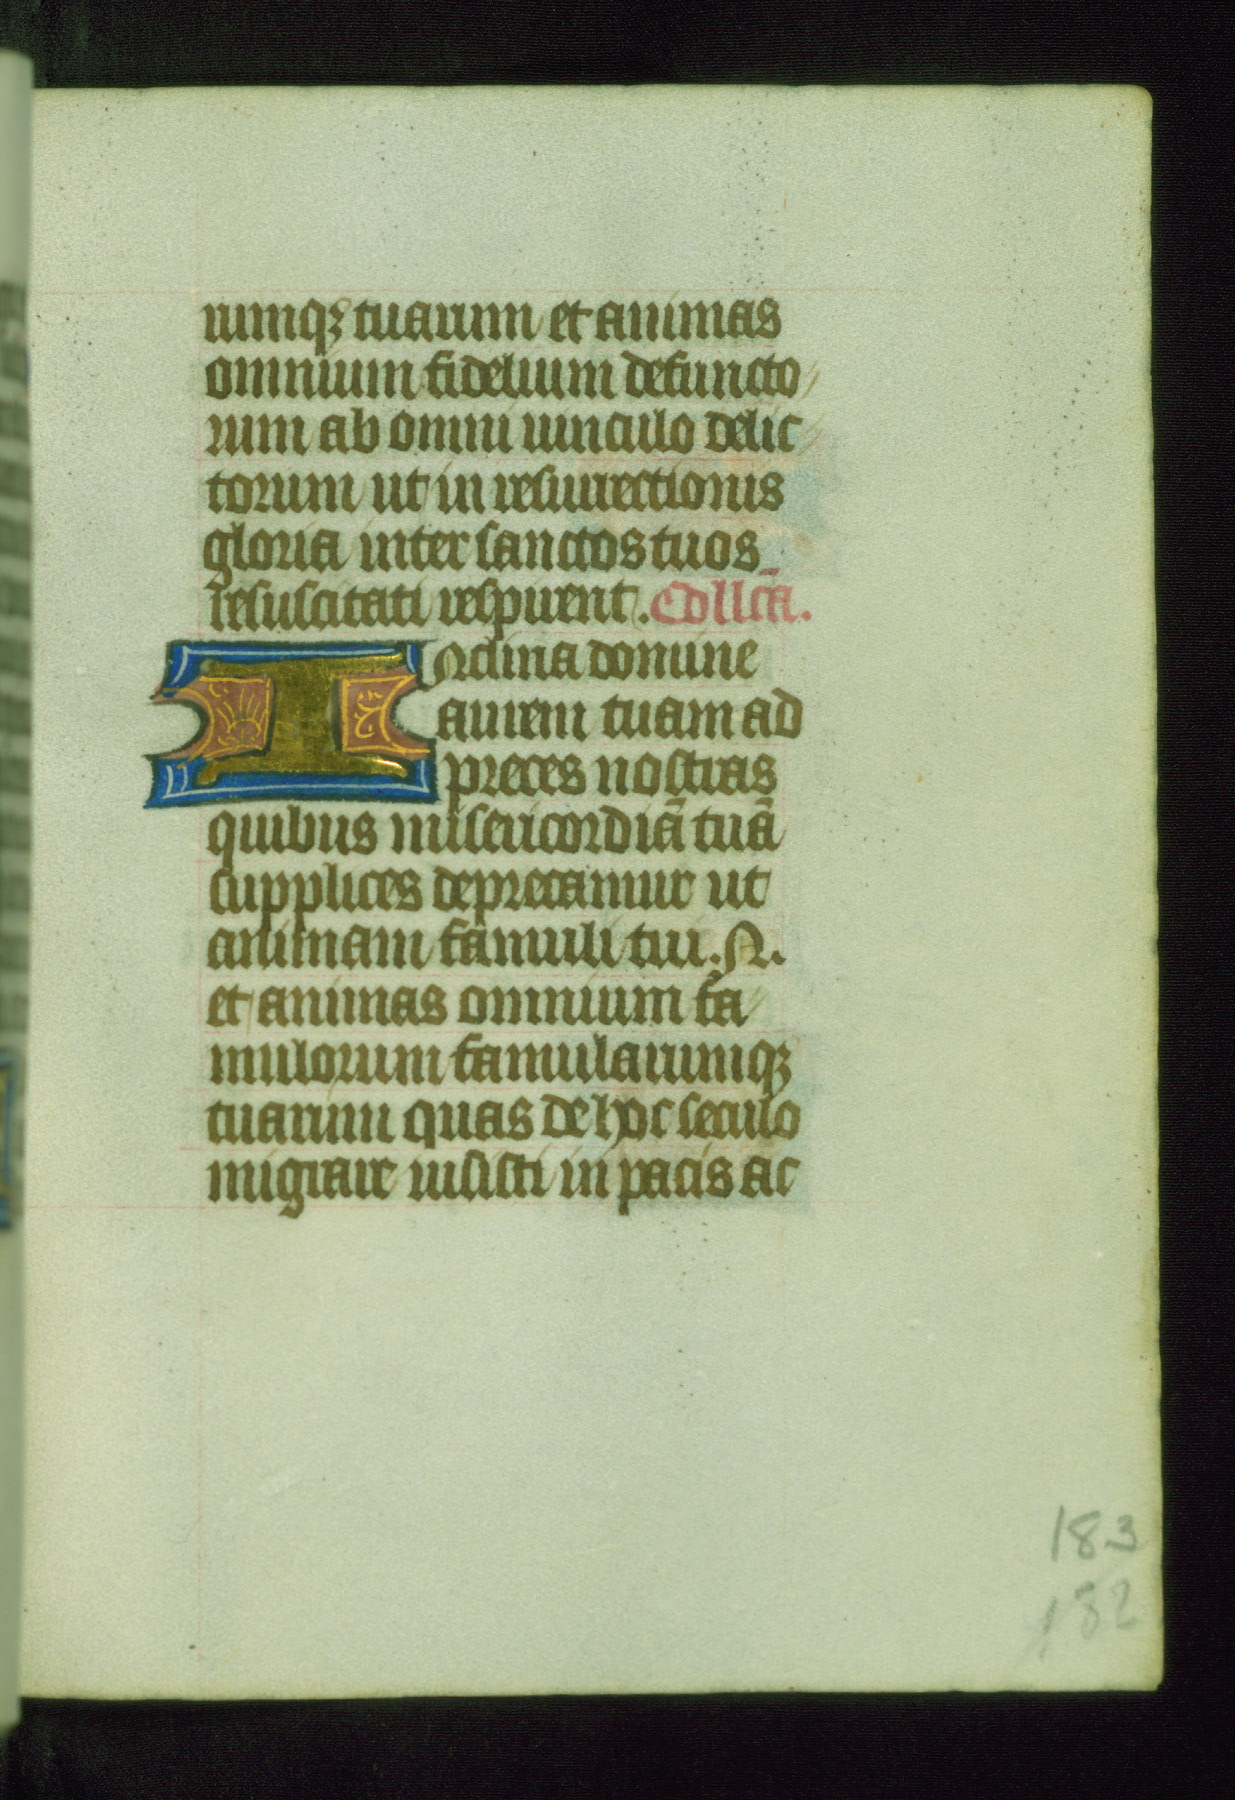 rumqꝫ tuarum et animas
omnium fidelium defuncto
rum ab omni uinculo delic
torum ut in resurrectionis
gloria inter sanctos tuos
resuscitati respirent. Collcā.
Inclina domine
aurem tuam ad
preces nostras
quibus misericordiā tuā
supplices deprecamur ut
animam famuli tui. N.
et animas omnium fa
mulorum famularumqꝫ
tuarum quas de hoc seculo
migrare iusisti in pacis ac
183
182